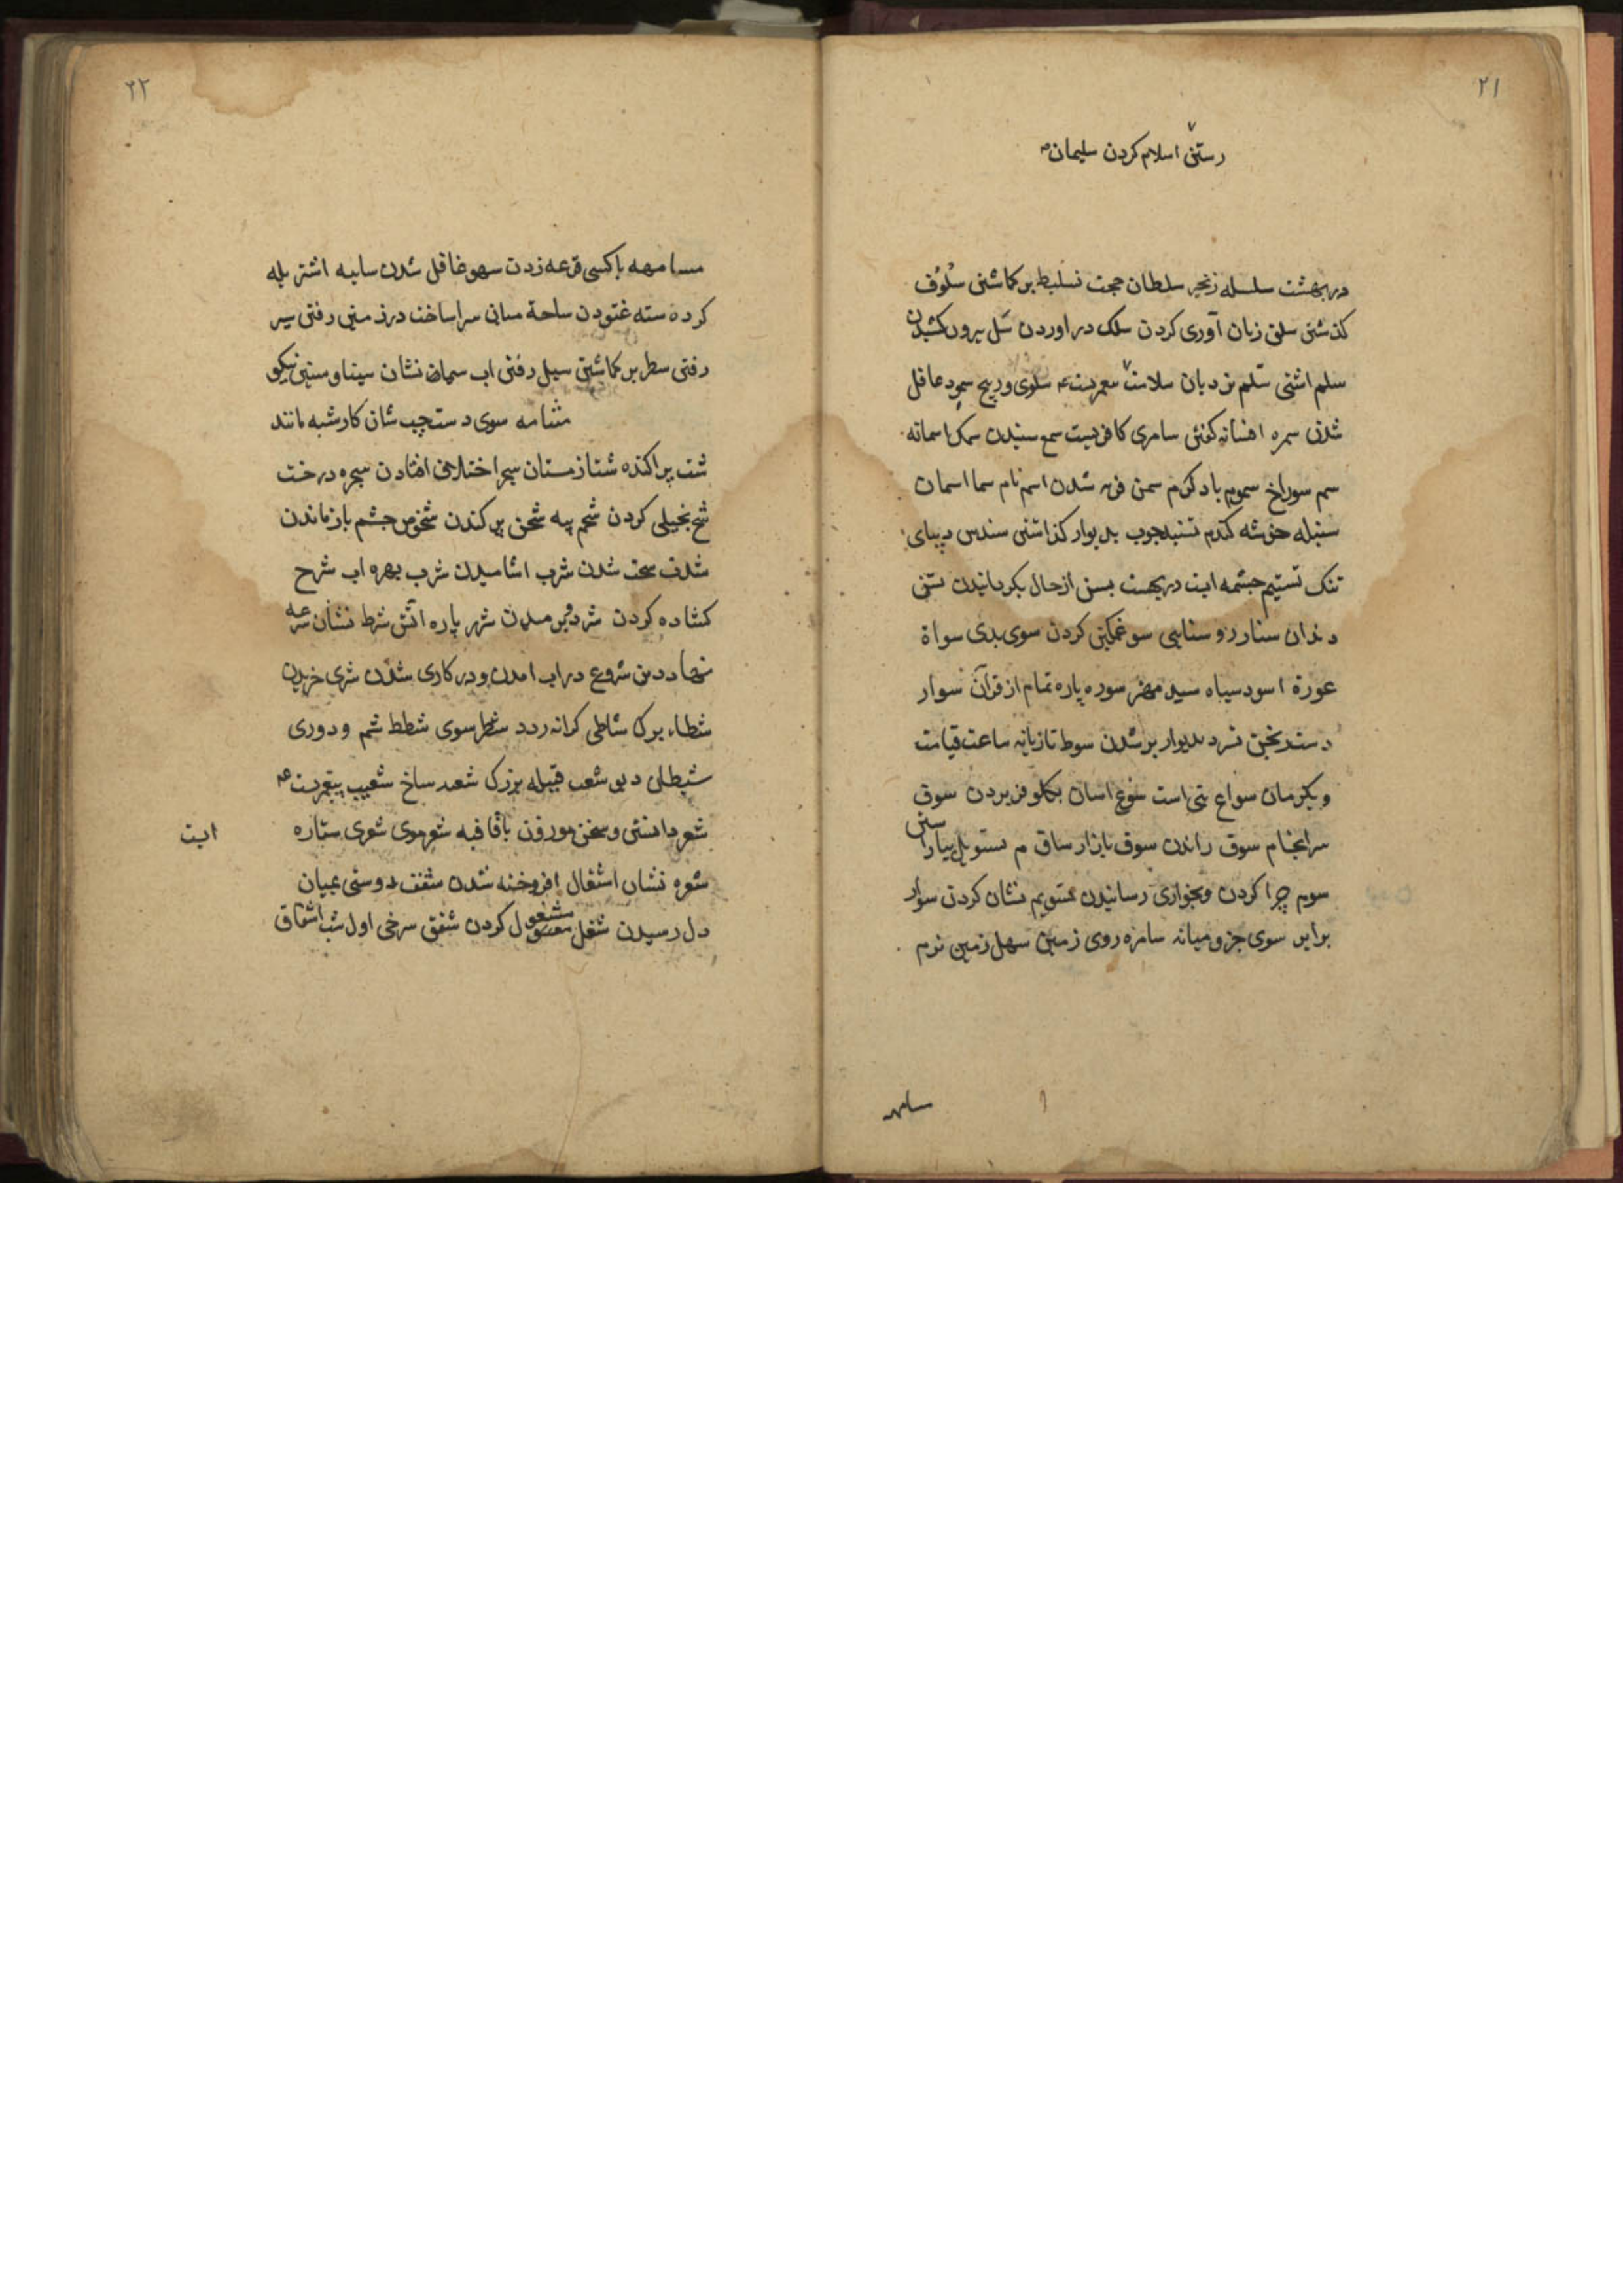 ۲۱
رستن اسلام کردن سلیمان
در بهشت سلسله زنجیر سلطان حجت تسلیط بر کماشتن سلوف
کذشتن سلق زبان آوری کردن سلک در اوردن سل بیرون کشیدن
سلم اشتی سلم نردبان سلامت سلوی وریج سمود غافل
شدن سمره افسانه کفتن سامری کافریست سمع سنیدن سمک اسمانه
سم سوراخ سموم باد کرم سمن فربه شدن اسم نام سما اسمان
سنبله خوشه کندم تسنید چوب بدیوار کذاشتن سندس دیبای
تنک تسنیم چشمه ایت در بهشت بسن از حال بکردانیدن سن
دندان سنار روسنایی سو غمکین کردن سوی بدی سواة
عورة اسود سیاه سید مهتر سوره پاره تمام از قرآن سوار
دستدنجن بدیوار بر شدن سوط تازیانه ساعت قیامت
ویکزمان سواع بتی است سوغ اسان بکلو فر بردن سوق
سرانجام سوق راندن سوق بازار ساق م بیاراستن
سوم چرا کردن وبخواری رسانیدن نشان کردن سوار
برابر سوی جز ومیانه سامره روی زمین سهل زمین نرم
ساهر
۲۲
مسامهه باکسی قرعه زدن سهو غافل شدن سایبه اشتر یله
کرده سته غنودن ساحة میانی سرا ساخت در زمینی رفتن سیر
رفتن سطر بر کماشتن سیل رفتن اب سیماه نشان سینا وسینین نیکو
مشامه سوی دست چپ شان کار شبه مانند
شت پراکنده شتا زمستان سجر اختلافی افتادن سجره درخت
شح بخیلی کردن شحم پیه شحن پر کندن شخوص چشم باز ماندن
شدت سخت شدن شرب اشامیدن شرب بهره اب شرح
کشاده کردن شرد شرر پاره اتش شرط نشان شرعه
نهاد دین شروع دراب امدن ودر کاری شدن شری خریدن
شطاء برک شاطی کرانه رود شطر سوی شطط ستم ودوری
شیطان دیو شعب قبیله بزرک شعب شاخ شعیب پیغمبریست
شعر دانستن وسخن موزون باقافیه شعر موی شعری ستاره
ایت
شعره نشان اشتعال افروخته شدن شغف دوستی بمیان
دل رسیدن شغل مشغول کردن شفق سرخی اول شب اشفاق